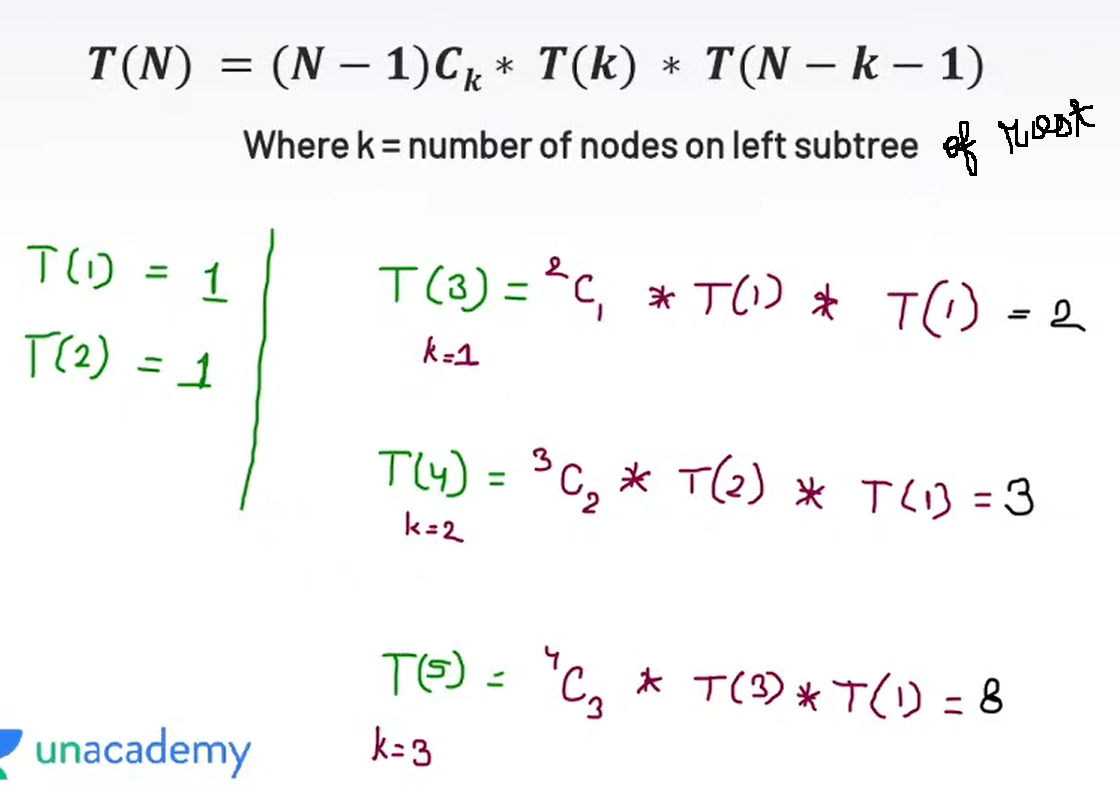 T(N) = (N − 1)Cₖ * T(k) * T(N − k − 1)
Where k = number of nodes on left subtree of root
T(1) = 1
T(2) = 1
T(3) = ²C₁ * T(1) * T(1) = 2
k=1
T(4) = ³C₂ * T(2) * T(1) = 3
k=2
T(5) = ⁴C₃ * T(3) * T(1) = 8
k=3
unacademy